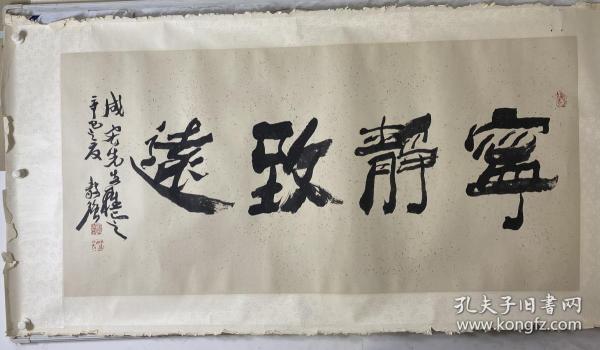 寧靜致遠
先生
辛巳之夏
孔夫子旧書网
www.kongfz.com